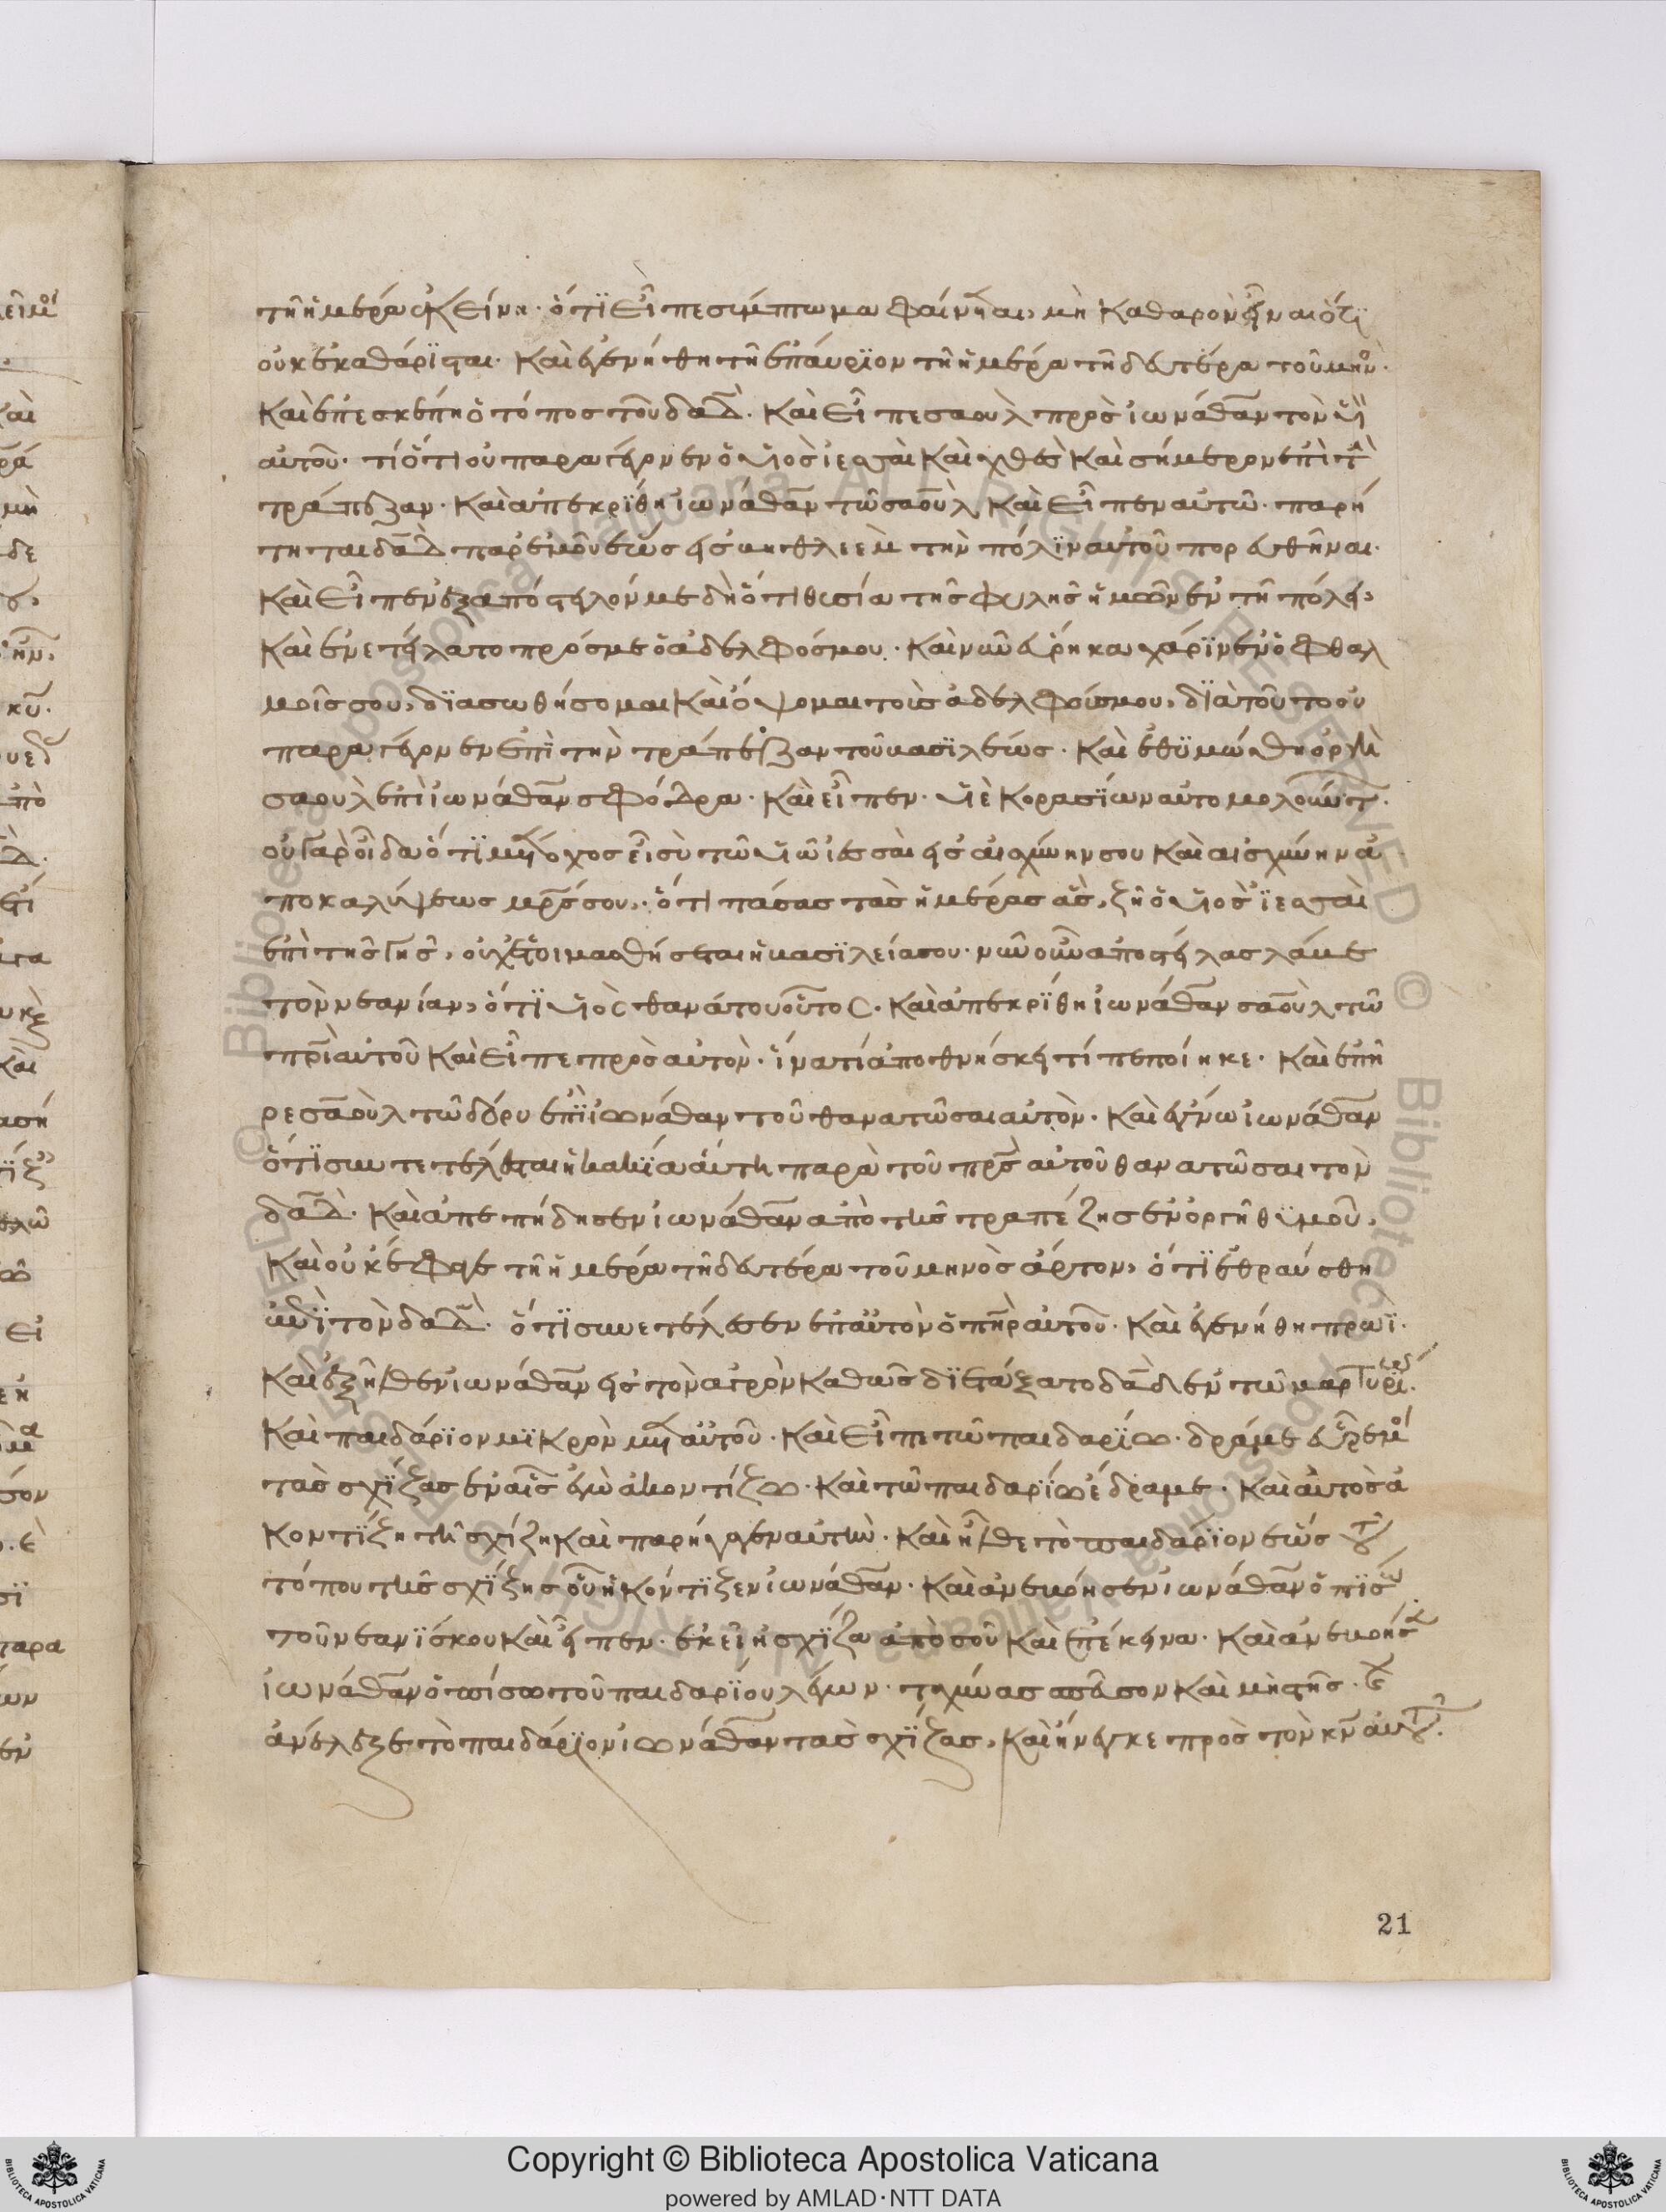 τῆ ἡμέρα ἐκείνη· ὅτϊ εἶπε σύμπτωμα φαίνεται, μὴ καθαρὸν εἶναι ὅτϊ
οὐκ ἐκαθάρϊσται· καὶ ἐγενήθη τῆ ἐπάυρϊον τῆ ἡμέρα τῆ δευτέρα τοῦ μην·
καὶ ἐπεσκέπη ὁ τόπος τοῦ δαδ· καὶ εἶπε σαουλ πρὸς ἰωνάθαν τὸν υἱ
αὐτοῦ· τί ὅτι οὐ παραγέγονεν ὁ υἱὸς ἰεσσαὶ καὶ χθὲς καὶ σήμερον ἐπὶ τὴ
τράπεζαν· καὶ ἀπεκρίθη ἰωνάθαν τῶ σαοὺλ καὶ εἶπεν αὐτῶ· παρή
τηται δαδ παρ ἐμοῦ ἕως εἰς βηθλεὲμ τὴν πόλϊν αὐτοῦ πορευθῆναι·
καὶ εἶπεν ἐξαπόστειλόν με δὴ ὅτι θυσία τῆς φυλῆς ἡμῶν ἐν τῆ πόλει,
καὶ ἐνετείλατο πρός με ὁ ἀδελφός μου· καὶ νῦν εὕρηκα χάρϊν ἐν ὀφθαλ
μοῖς σου, δϊασωθήσομαι καὶ ὄψομαι τοὺς ἀδελφούς μου, δϊὰ τοῦτο οὐ
παραγέγονεν ἐπὶ τὴν τράπεζαν τοῦ βασϊλέως· καὶ ἐθϋμώθη ὀργὴ
σαουλ ἐπὶ ἰωνάθαν σφόδρα· καὶ εἶπεν· υἱὲ κορασϊων αὐτομολούντ·
οὐ γὰρ οἶδα ὅτϊ μέτοχος εἶ σὺ τῶ υἱῶ ἰεσσαὶ εἰς αἰσχύνην σου καὶ αἰσχύνην ἀ
ποκαλύψεως μρς σου· ὅτι πάσας τὰς ἡμέρας ἃς, ζῆ ὁ υἱὸς ϊεσσαὶ
ἐπὶ τῆς γῆς, οὐχ ἑτοιμασθήσεται ἡ βασϊλεία σου· νῦν οὖν ἀποστείλας λάμβε
τὸν νεανίαν, ὅτϊ υἱὸς θανάτου οὗτος· καὶ ἀπεκρϊθη ἰωνάθαν σαοὺλ τῶ
πρὶ αὐτοῦ καὶ εἶπε πρὸς αὐτόν· ἱνατί ἀποθνήσκει τί πεποίηκε· καὶ ἐπῆ
ρε σαοὺλ τῶ δόρυ ἐπὶ ἰωνάθαν τοῦ θανατῶσαι αὐτόν· καὶ ἔγνω ἰωνάθαν
ὅτϊ συντετέλεσται ἡ κακϊα αὕτη παρὰ τοῦ πρς αὐτοῦ θανατῶσαι τὸν
δαδ· καὶ ἀπεπήδησεν ἰωνάθαν ἀπὸ τῆς τραπέζης ἐν ὀργῆ θϋμοῦ,
καὶ οὐκ ἔφαγε τῆ ἡμέρα τῆ δευτέρα τοῦ μηνὸς ἄρτον, ὅτϊ ἐθραύσθη
ἐπὶ τὸν δαδ· ὅτϊ συνετέλεσεν ἐπ αὐτὸν ὁ πὴρ αὐτοῦ· καὶ ἐγενήθη πρωϊ·
καὶ ἐξῆλθεν ἰωνάθαν εἰς τὸν ἀγρὸν καθὼς δϊετάξατο δαδ ἐν τῶ μαρτυρϊ·
καὶ παιδάρϊον μϊκρὸν μετ αὐτοῦ· καὶ εἶπε τῶ παιδαρϊω· δράμε εὗρέ μοι
τὰς σχϊζας ἐν αἷς ἐγὼ ἀκοντίζω· καὶ τῶ παιδαρίω ἔδραμε· καὶ αὐτὸς ἀ
κοντϊζη τῆ σχίζη καὶ παρήγαγεν αὐτήν· καὶ ἦλθε τὸ παιδάρϊον ἕως τοῦ
τόπου τῆς σχϊζης οὗ ἠκόντϊζεν ἰωνάθαν· καὶ ἀνεβόησεν ἰωνάθαν ὀπϊσω
τοῦ νεανϊσκου καὶ εἶπεν· ἐκεῖ ἡ σχϊζα ἀπὸ σοῦ καὶ ἐπέκεινα· καὶ ἀνεβόησε
ἰωνάθαν ὀπίσω τοῦ παιδαρϊου λέγων· ταχύνας σπεῦσον καὶ μὴ στῆς· καὶ
ἀνέλεξε τὸ παιδάρϊον ἰωνάθαν τὰς σχϊζας, καὶ ἤνεγκε πρὸς τὸν κν αὐτοῦ·
21
Copyright © Biblioteca Apostolica Vaticana
powered by AMLAD·NTT DATA